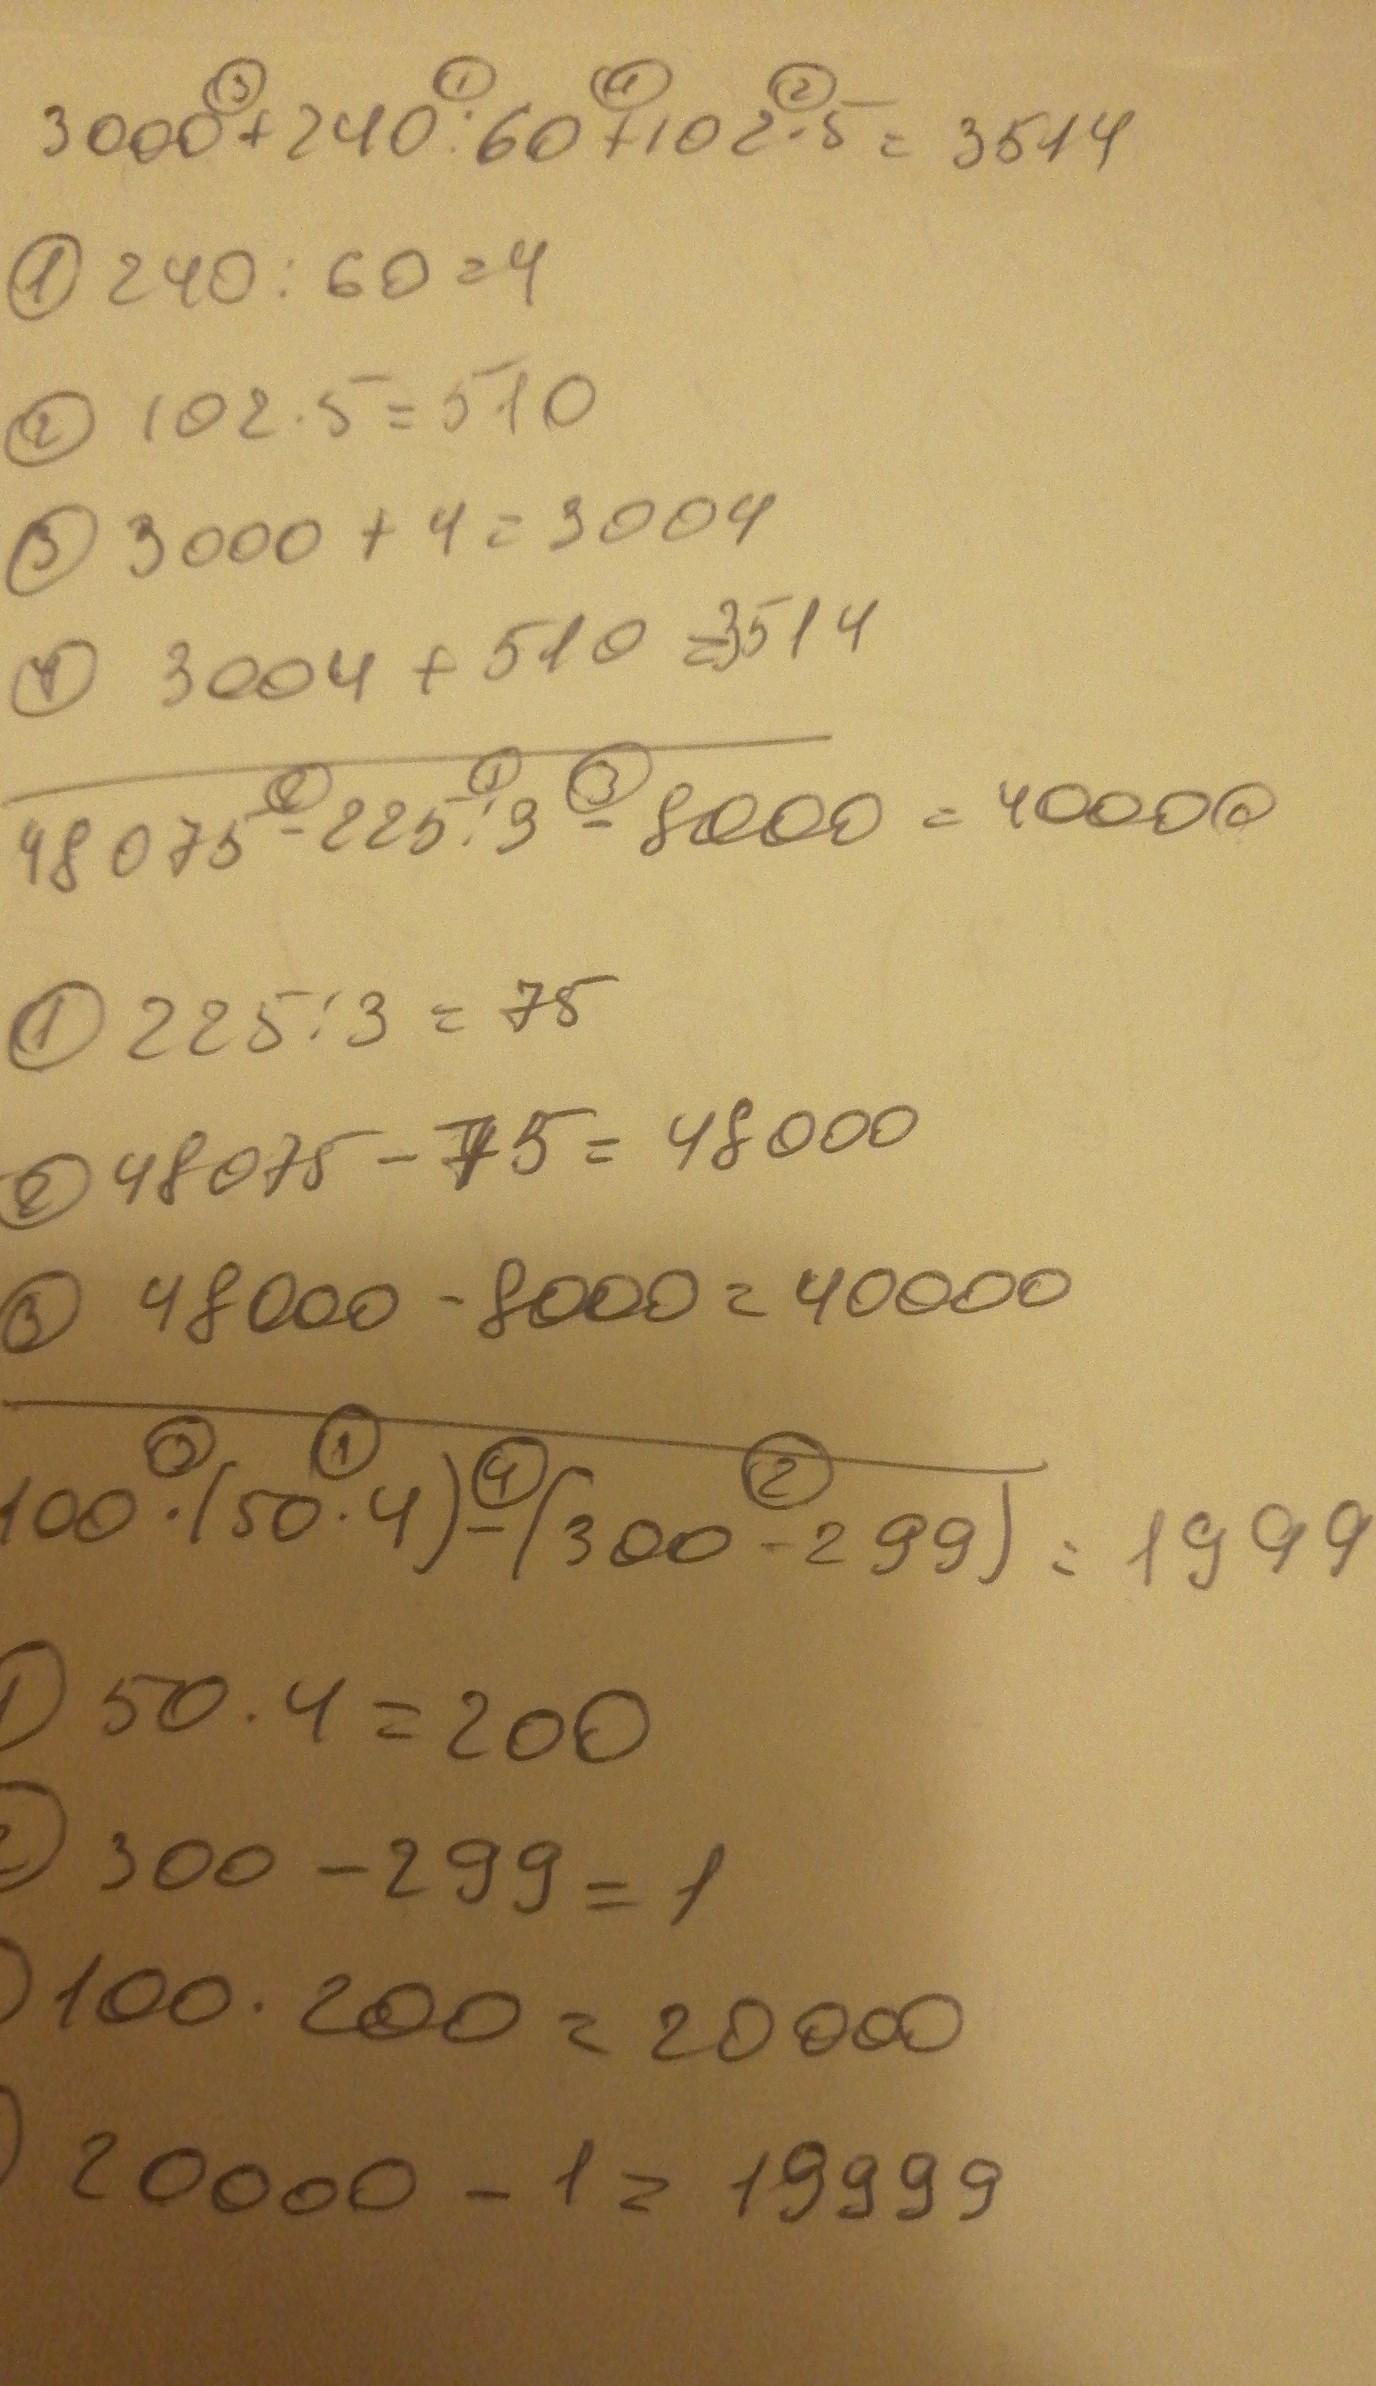 ③ ① ④ ②
3000+240:60+102·5=3514
① 240:60=4
② 102·5=510
③ 3000+4=3004
④ 3004+510=3514
② ① ③
48075-225:3-8000=40000
① 225:3=75
② 48075-75=48000
③ 48000-8000=40000
③ ① ④ ②
100·(50·4)-(300-299)=1999
① 50·4=200
② 300-299=1
100·200=20000
20000-1=19999